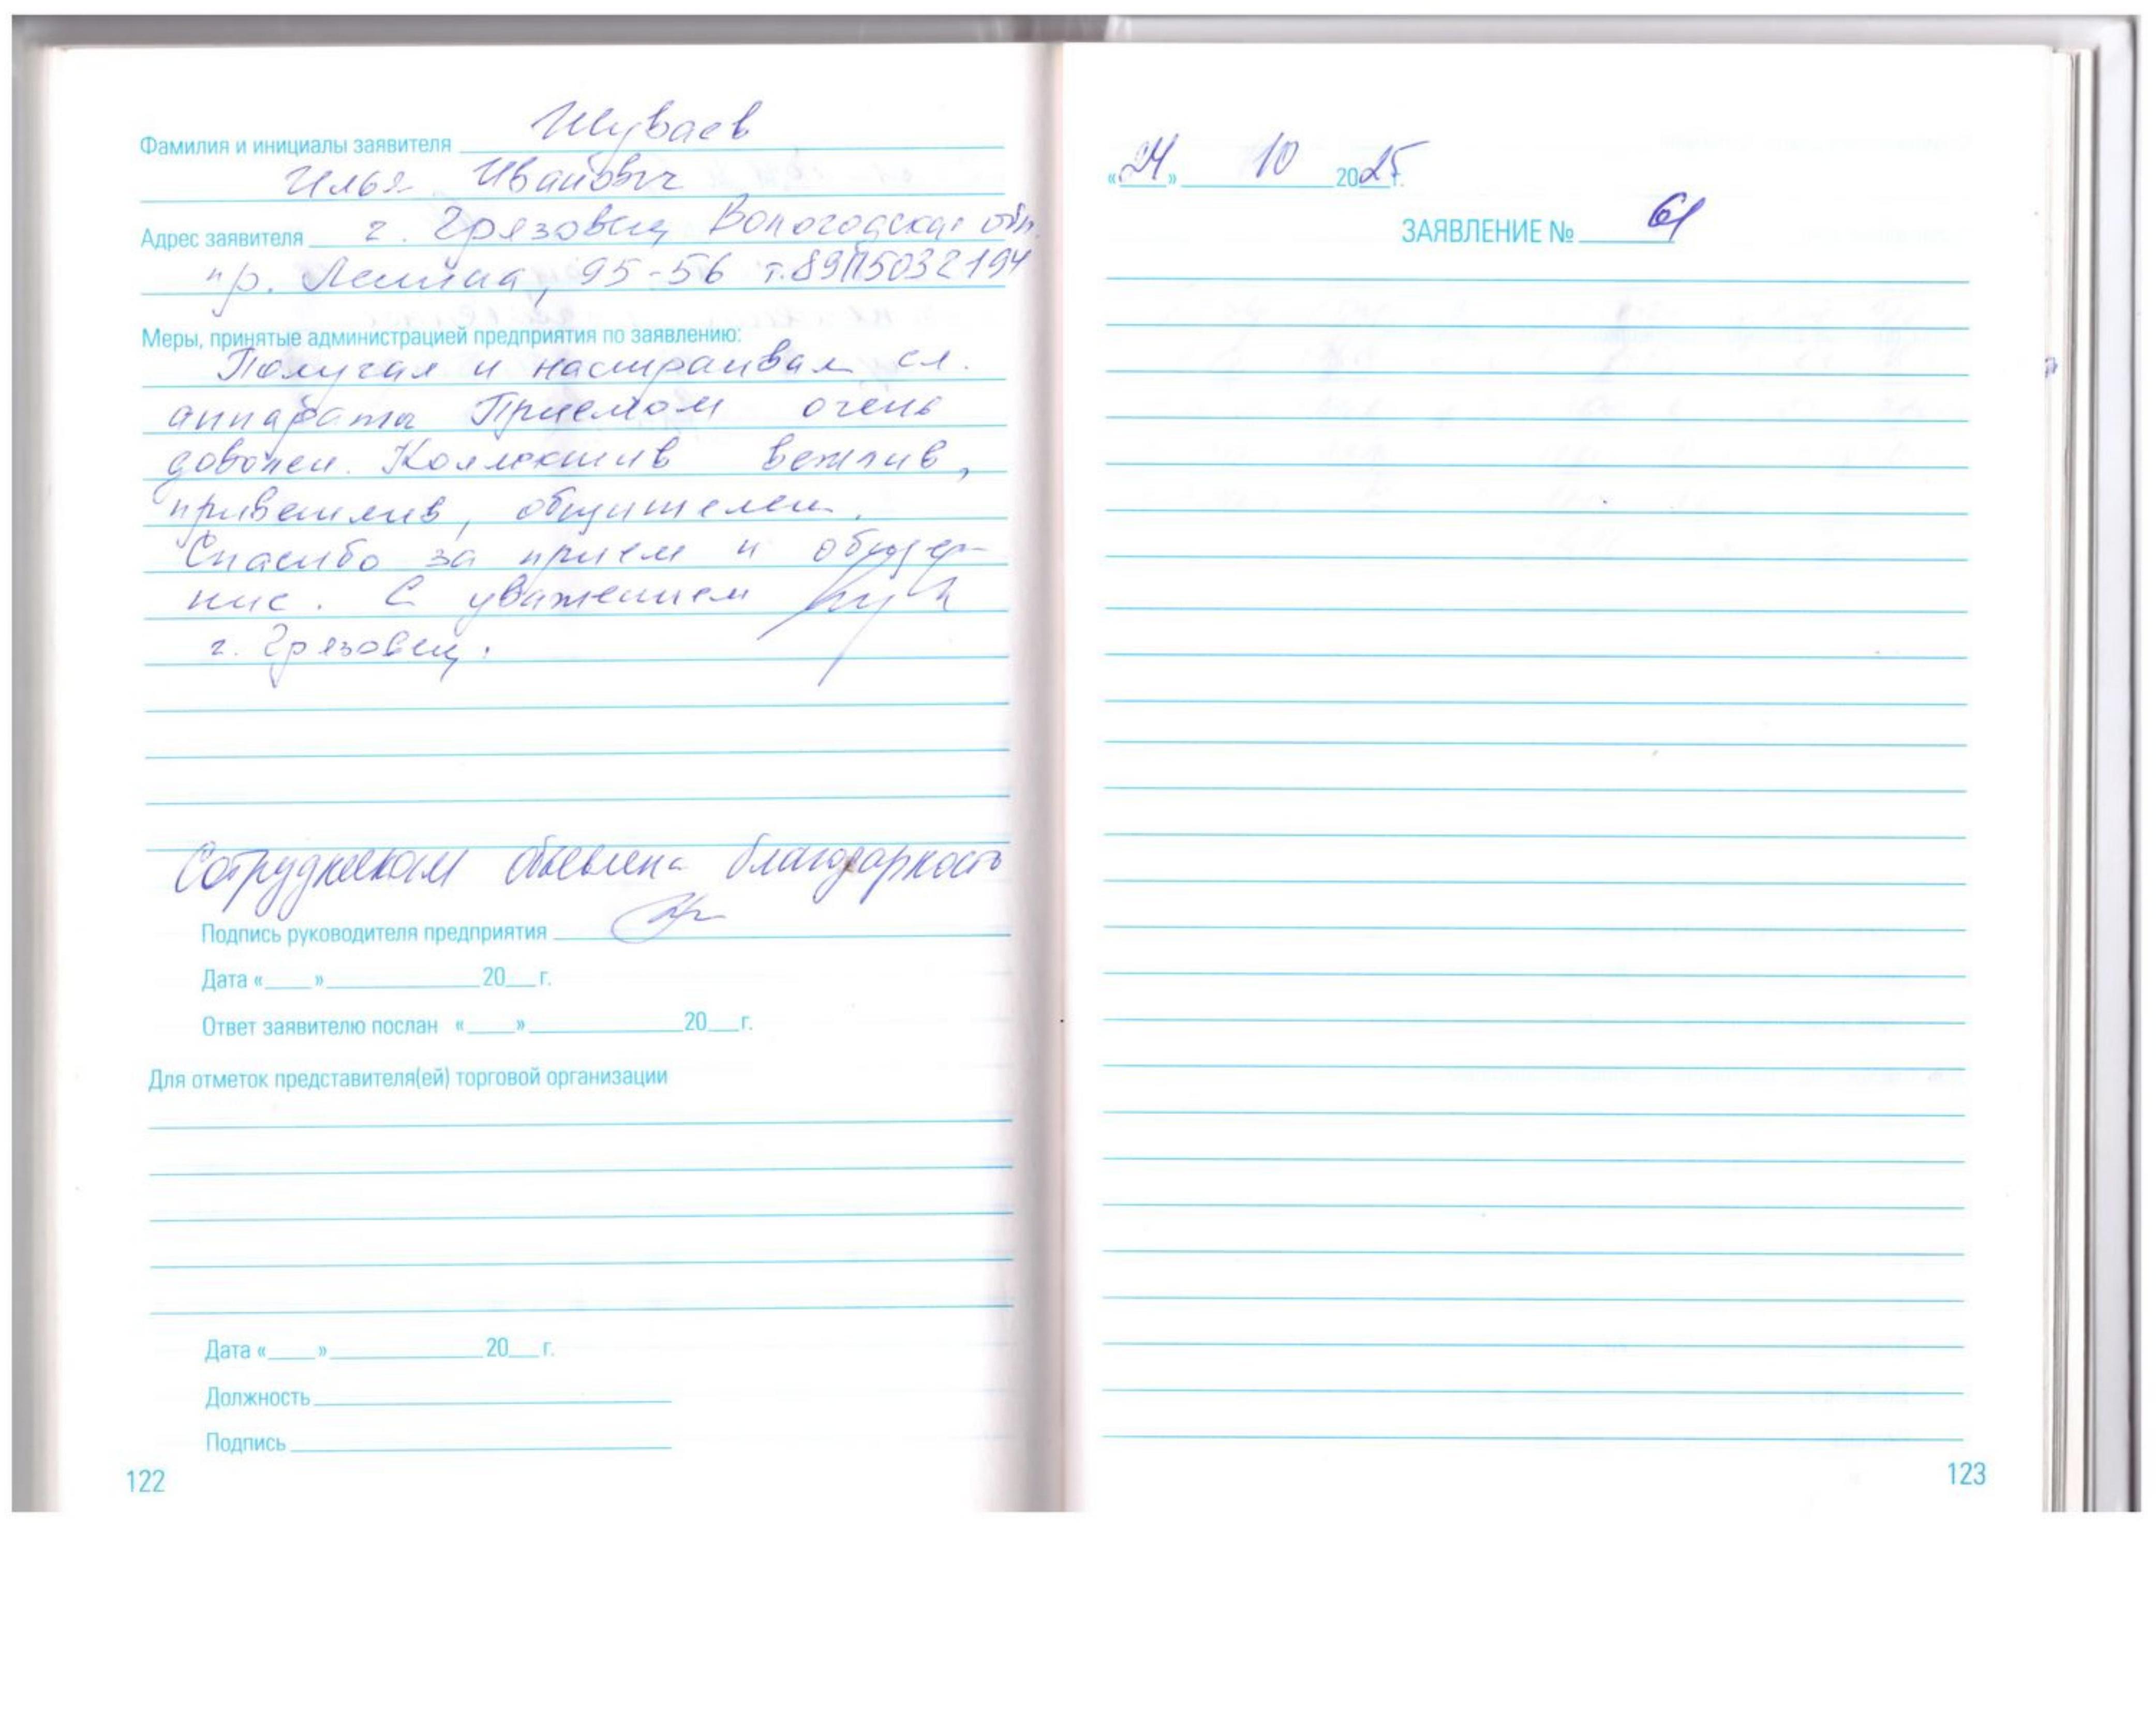 Фамилия и инициалы заявителя Шуваев
Илья Иванович
Адрес заявителя г. Грязовец Вологодская обл.
пр. Ленина, 95-56 т.89115032194
Меры, принятые администрацией предприятия по заявлению:
Получал и настраивал сл.
аппарата Приемом очень
доволен. Коллектив вежлив,
приветлив, общителен.
Спасибо за прием и общде-
ние. С уважением
г. Грязовец.
Сотрудникам объявлена благодарность
Подпись руководителя предприятия
Дата «___» ___ 20__ г.
Ответ заявителю послан «___» ___ 20__ г.
Для отметок представителя(ей) торговой организации
Дата «___» ___ 20__ г.
Должность
Подпись
122
«24» 10 2025 г.
ЗАЯВЛЕНИЕ № 61
123